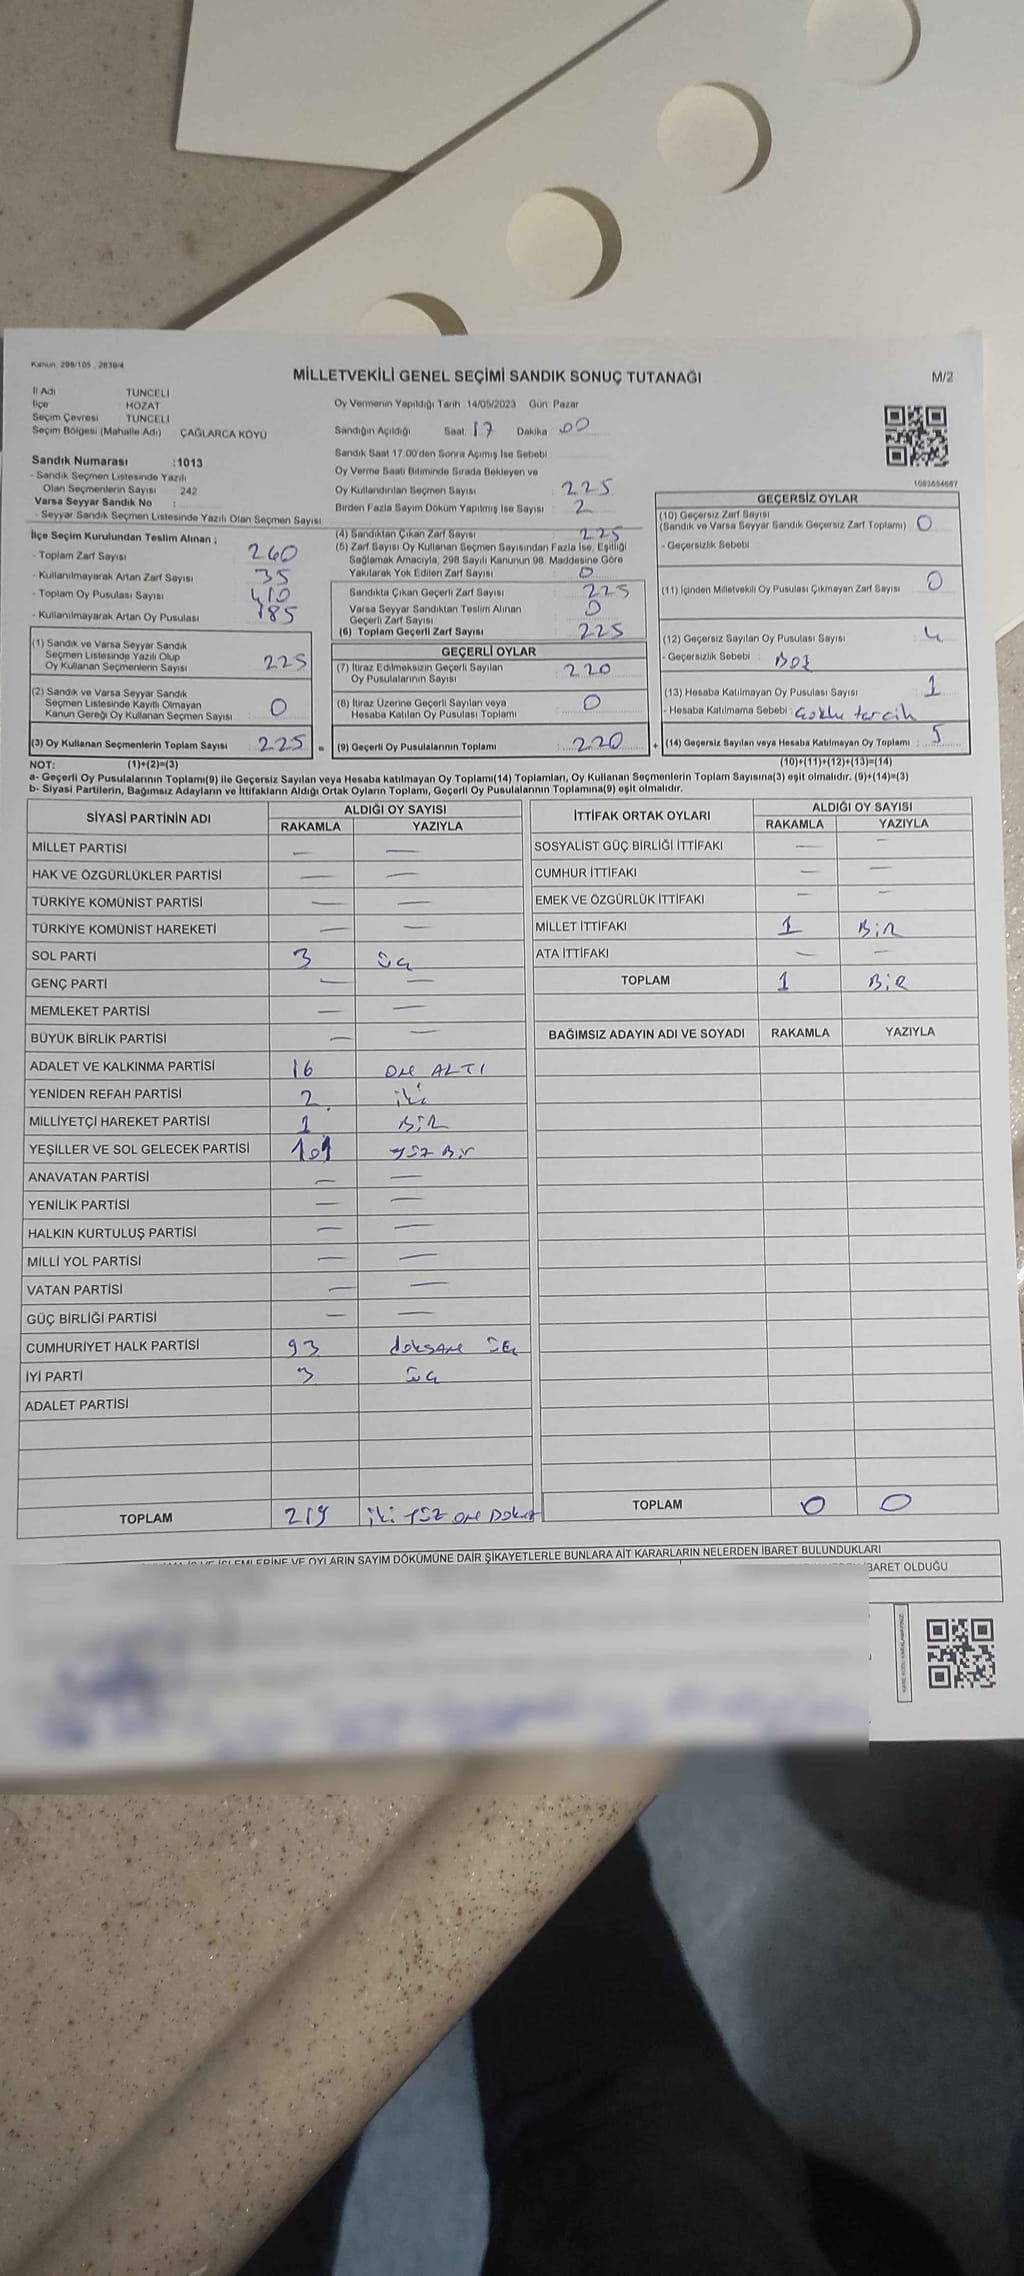 Kanun: 298/105 , 2839/4
MİLLETVEKİLİ GENEL SEÇİMİ SANDIK SONUÇ TUTANAĞI
M/2
İl Adı TUNCELİ
İlçe HOZAT
Seçim Çevresi TUNCELİ
Seçim Bölgesi (Mahalle Adı) ÇAĞLARCA KÖYÜ
Sandık Numarası :1013
- Sandık Seçmen Listesinde Yazılı
Olan Seçmenlerin Sayısı : 242
Varsa Seyyar Sandık No :
- Seyyar Sandık Seçmen Listesinde Yazılı Olan Seçmen Sayısı
Oy Vermenin Yapıldığı Tarih :14/05/2023 Gün: Pazar
Sandığın Açıldığı Saat: 17 Dakika 00
Sandık Saat 17:00'den Sonra Açımış İse Sebebi :
Oy Verme Saati Bitiminde Sırada Bekleyen ve
Oy Kullandırılan Seçmen Sayısı : 225
Birden Fazla Sayım Döküm Yapılmış İse Sayısı : 2
1093654687
İlçe Seçim Kurulundan Teslim Alınan ;
- Toplam Zarf Sayısı : 260
- Kullanılmayarak Artan Zarf Sayısı : 35
- Toplam Oy Pusulası Sayısı : 410
- Kullanılmayarak Artan Oy Pusulası : 185
(1) Sandık ve Varsa Seyyar Sandık
Seçmen Listesinde Yazılı Olup
Oy Kullanan Seçmenlerin Sayısı : 225
(2) Sandık ve Varsa Seyyar Sandık
Seçmen Listesinde Kayıtlı Olmayan
Kanun Gereği Oy Kullanan Seçmen Sayısı : 0
(3) Oy Kullanan Seçmenlerin Toplam Sayısı : 225 =
(4) Sandıktan Çıkan Zarf Sayısı : 225
(5) Zarf Sayısı Oy Kullanan Seçmen Sayısından Fazla İse, Eşitliği
Sağlamak Amacıyla, 298 Sayılı Kanunun 98. Maddesine Göre
Yakılarak Yok Edilen Zarf Sayısı : 0
Sandıkta Çıkan Geçerli Zarf Sayısı : 225
Varsa Seyyar Sandıktan Teslim Alınan
Geçerli Zarf Sayısı : 0
(6) Toplam Geçerli Zarf Sayısı : 225
GEÇERLİ OYLAR
(7) İtiraz Edilmeksizin Geçerli Sayılan
Oy Pusulalarının Sayısı : 220
(8) İtiraz Üzerine Geçerli Sayılan veya
Hesaba Katılan Oy Pusulası Toplamı : 0
(9) Geçerli Oy Pusulalarının Toplamı : 220 +
GEÇERSİZ OYLAR
(10) Geçersiz Zarf Sayısı
(Sandık ve Varsa Seyyar Sandık Geçersiz Zarf Toplamı) : 0
- Geçersizlik Sebebi :
(11) İçinden Milletvekili Oy Pusulası Çıkmayan Zarf Sayısı : 0
(12) Geçersiz Sayılan Oy Pusulası Sayısı : 4
- Geçersizlik Sebebi : BOŞ
(13) Hesaba Katılmayan Oy Pusulası Sayısı : 1
- Hesaba Katılmama Sebebi : çoklu tercih
(14) Geçersiz Sayılan veya Hesaba Katılmayan Oy Toplamı : 5
NOT: (1)+(2)=(3)
(10)+(11)+(12)+(13)=(14)
a- Geçerli Oy Pusulalarının Toplamı(9) ile Geçersiz Sayılan veya Hesaba katılmayan Oy Toplamı(14) Toplamları, Oy Kullanan Seçmenlerin Toplam Sayısına(3) eşit olmalıdır. (9)+(14)=(3)
b- Siyasi Partilerin, Bağımsız Adayların ve İttifakların Aldığı Ortak Oyların Toplamı, Geçerli Oy Pusulalarının Toplamına(9) eşit olmalıdır.
SİYASİ PARTİNİN ADI ALDIĞI OY SAYISI
RAKAMLA YAZIYLA
MİLLET PARTİSİ — —
HAK VE ÖZGÜRLÜKLER PARTİSİ — —
TÜRKİYE KOMÜNİST PARTİSİ — —
TÜRKİYE KOMÜNİST HAREKETİ — —
SOL PARTİ 3 üç
GENÇ PARTİ — —
MEMLEKET PARTİSİ — —
BÜYÜK BİRLİK PARTİSİ — —
ADALET VE KALKINMA PARTİSİ 16 ON ALTI
YENİDEN REFAH PARTİSİ 2 iki
MİLLİYETÇİ HAREKET PARTİSİ 1 BİR
YEŞİLLER VE SOL GELECEK PARTİSİ 101 yüz Bir
ANAVATAN PARTİSİ — —
YENİLİK PARTİSİ — —
HALKIN KURTULUŞ PARTİSİ — —
MİLLİ YOL PARTİSİ — —
VATAN PARTİSİ — —
GÜÇ BİRLİĞİ PARTİSİ — —
CUMHURİYET HALK PARTİSİ 93 doksan üç
İYİ PARTİ 3 üç
ADALET PARTİSİ
TOPLAM 219 iki yüz on Dokuz
İTTİFAK ORTAK OYLARI ALDIĞI OY SAYISI
RAKAMLA YAZIYLA
SOSYALİST GÜÇ BİRLİĞİ İTTİFAKI — —
CUMHUR İTTİFAKI — —
EMEK VE ÖZGÜRLÜK İTTİFAKI — —
MİLLET İTTİFAKI 1 BİR
ATA İTTİFAKI — —
TOPLAM 1 BİR
BAĞIMSIZ ADAYIN ADI VE SOYADI RAKAMLA YAZIYLA
TOPLAM 0 0
İŞLEMLERİNE VE OYLARIN SAYIM DÖKÜMÜNE DAİR ŞİKAYETLERLE BUNLARA AİT KARARLARIN NELERDEN İBARET BULUNDUKLARI
İBARET OLDUĞU